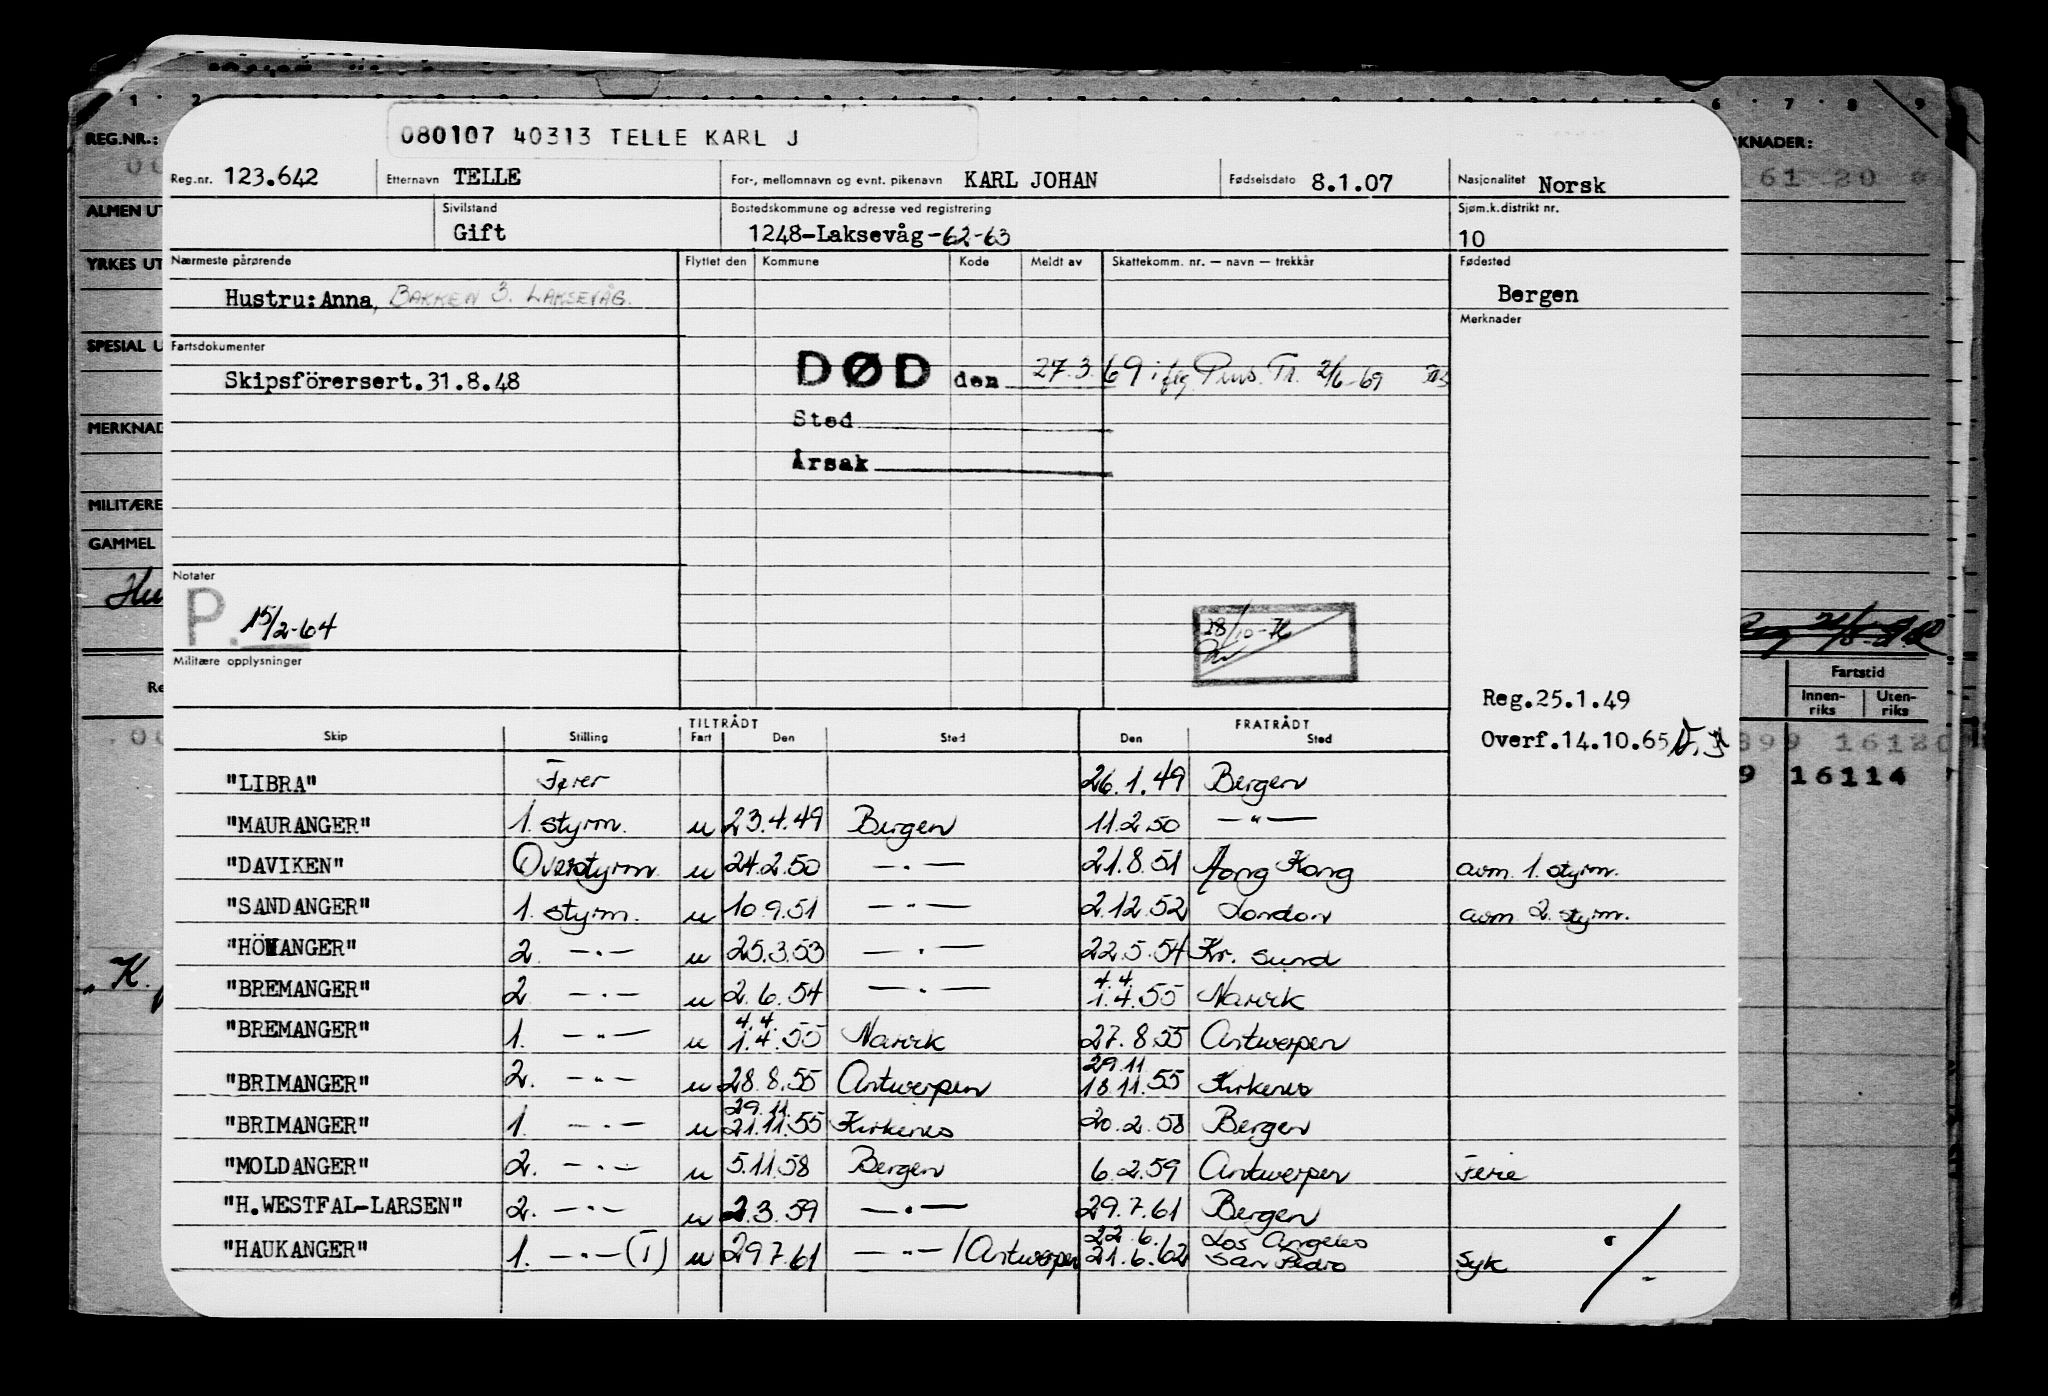 080107 40313 TELLE KARL J
REG.NR.:
Reg.nr. 123.642 Etternavn TELLE For-, mellomnavn og evnt. pikenavn KARL JOHAN Fødselsdato 8.1.07 Nasjonalitet Norsk
Sivilstand Gift Bostedskommune og adresse ved registrering 1248-Laksevåg-62-63 Sjøm.k.distrikt nr. 10
Nærmeste pårørende Flyttet den Kommune Kode Meldt av Skattekomm. nr. — navn — trekkår Fødested
Hustru: Anna, BAKKEN 3. LAKSEVÅG. Bergen
Merknader
Fartsdokumenter
Skipsförersert.31.8.48 DØD den 27.3.69 iflg. Tr. 2/6-69
Sted
Årsak
MILITÆRE
GAMMEL
Notater
P. 15/2-64
28/10-76
Militære opplysninger
Fartstid
Innen-riks Uten-riks
Reg.25.1.49
Overf.14.10.65
TILTRÅDT FRATRÅDT
Skip Stilling Fart Den Sted Den Sted
"LIBRA" Fører 26.1.49 Bergen
"MAURANGER" 1. styrm. u 23.4.49 Bergen 11.2.50 —"—
"DAVIKEN" Overstyrm. u 24.2.50 —"— 21.8.51 Hong Kong avm. 1. styrm.
"SANDANGER" 1. styrm. u 10.9.51 —"— 2.12.52 London avm. 2. styrm.
"HÖYANGER" 2. —"— u 25.3.53 —"— 22.5.54 Kr. sund
"BREMANGER" 2. —"— u 2.6.54 —"— 4.4. 1.4.55 Narvik
"BREMANGER" 1. —"— u 4.4. 1.4.55 Narvik 27.8.55 Antwerpen
"BRIMANGER" 2. —"— u 28.8.55 Antwerpen 29.11 18.11.55 Kirkenes
"BRIMANGER" 1. —"— u 29.11. 21.11.55 Kirkenes 20.2.58 Bergen
"MOLDANGER" 2. —"— u 5.11.58 Bergen 6.2.59 Antwerpen Ferie
"H.WESTFAL-LARSEN" 2. —"— u 2.3.59 —"— 29.7.61 Bergen
"HAUKANGER" 1. —"— (I) u 29.7.61 —"— / Antwerpen 22.6. 21.6.62 Los Angeles San Pedro Syk
16114